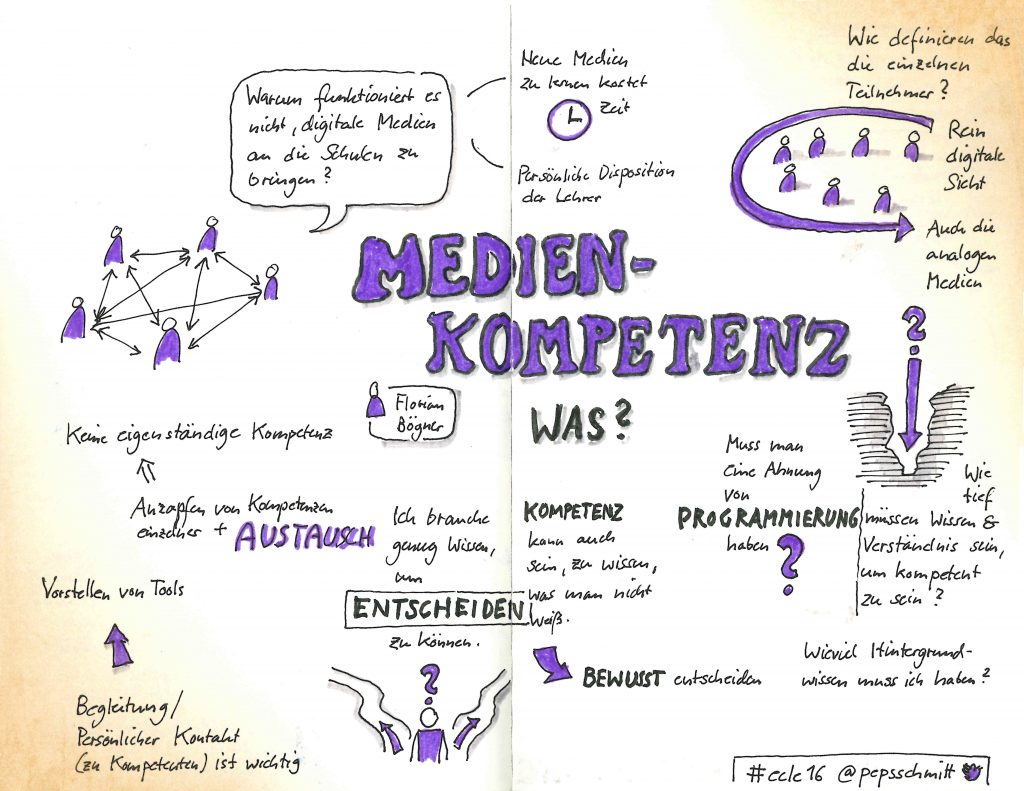 Warum funktioniert es
nicht, digitale Medien
an die Schulen zu
bringen?
Neue Medien
zu lernen kostet
Zeit
Persönliche Disposition
der Lehrer
Wie definieren das
die einzelnen
Teilnehmer?
Rein
digitale
Sicht
Auch die
analogen
Medien
MEDIEN-
KOMPETENZ
WAS?
Florian
Bögner
Keine eigenständige Kompetenz
Anzapfen von Kompetenzen
einzelner + AUSTAUSCH
Vorstellen von Tools
Begleitung/
Persönlicher Kontakt
(zu Kompetenten) ist wichtig
Ich brauche
genug Wissen,
um
ENTSCHEIDEN
zu können.
?
KOMPETENZ
kann auch
sein, zu wissen,
was man nicht
weiß.
BEWUSST entscheiden
Muss man
eine Ahnung
von
PROGRAMMIERUNG
haben ?
?
Wie
tief
müssen Wissen &
Verständnis sein,
um kompetent
zu sein?
Wieviel Hintergrund-
wissen muss ich haben?
#ecle16 @pepsschmitt